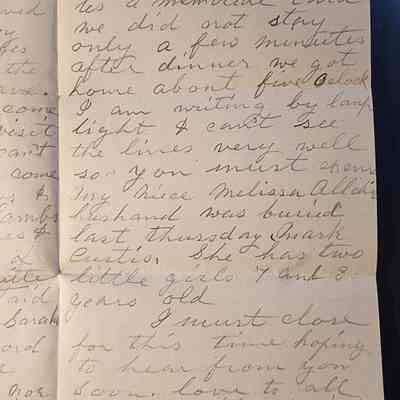 ved
y
the
ave.
come
visit
can't
come
& 
Lambs
es &
&
said
Sarah
ord
nor
tes a memorial card
we did not stay
only a few minutes
after dinner we got
home about five Oclock
I am writing by lamp
light I can't see
the lines very well
so you must excuse
my niece Melissa Allen's
husband was buried
last thursday mark
Curtis. She has two
little girls 7 and 3
years old
I must close
for this time hoping
to hear from you
soon. love to all